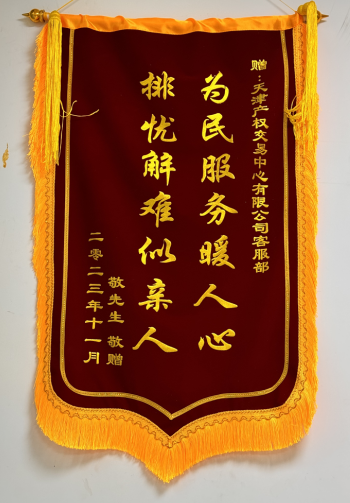 赠：天津产权交易中心有限公司客服部
为民服务暖人心
排忧解难似亲人
敬先生 敬赠
二零二三年十一月